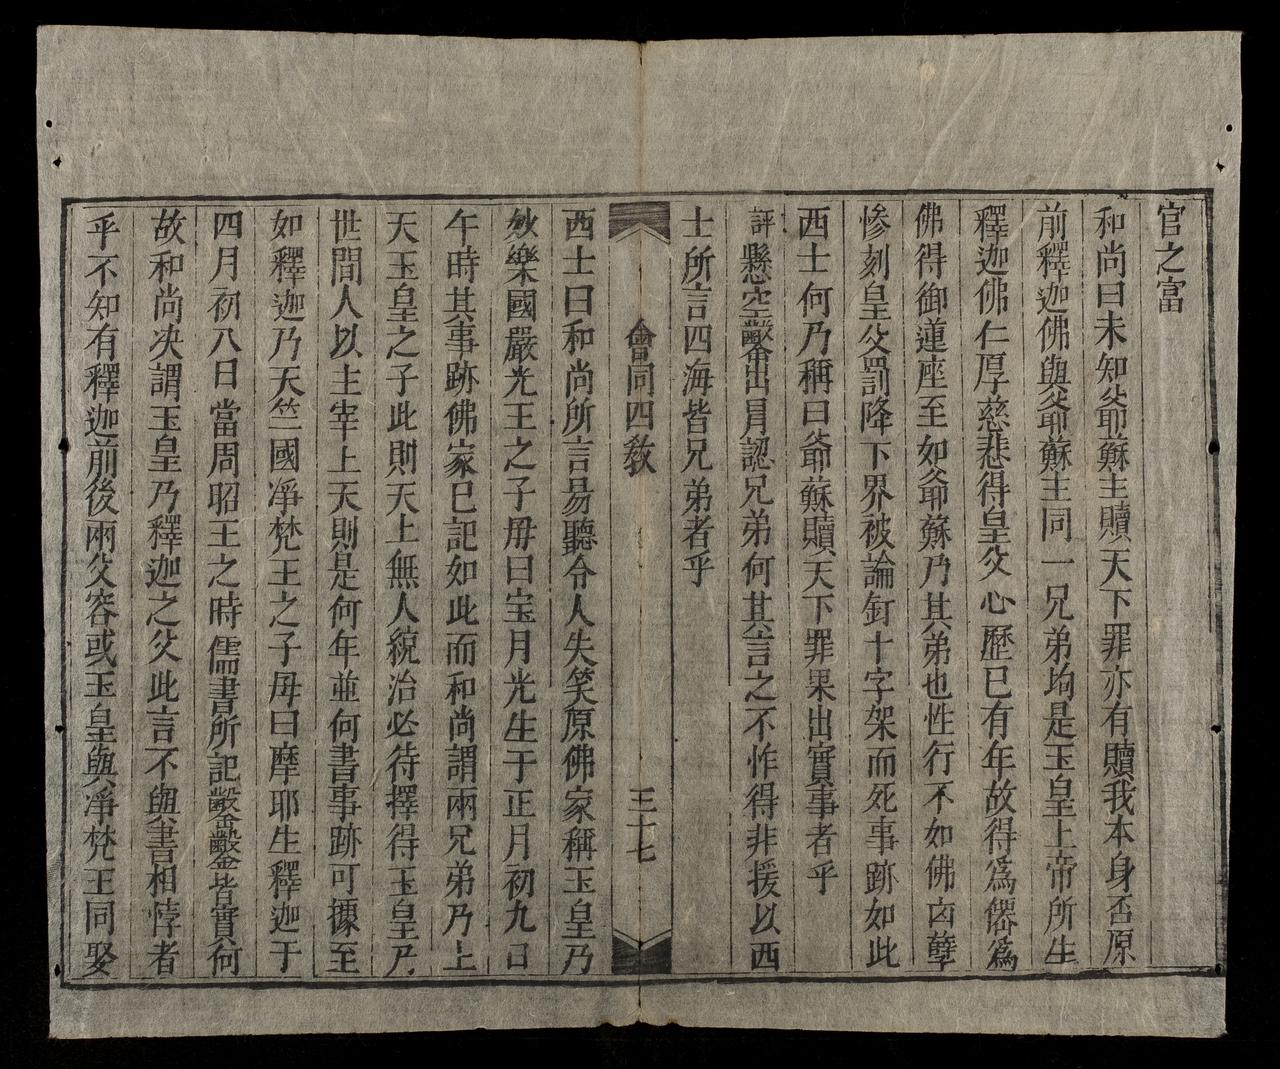 官之富
和尚曰未知爺蘇主贖天下罪亦有贖我本身否原
前釋迦佛與爺蘇主同一兄弟均是玉皇上帝所生
釋迦佛仁厚慈悲得皇父心歷已有年故得為僊為
佛得御蓮座至如爺蘇乃其弟也性行不如佛凶孽
慘刻皇父罰降下界被論釘十字架而死事跡如此
西士何乃稱曰爺蘇贖天下罪果出實事者乎
評懸空鑿出冐認兄弟何其言之不怍得非援以西
士所言四海皆兄弟者乎
會同四教
三十七
西士曰和尚所言易聽令人失笑原佛家稱玉皇乃
妙樂國嚴光王之子毋曰宝月光生于正月初九日
午時其事跡佛家已記如此而和尚謂兩兄弟乃上
天玉皇之子此則天上無人統治必待擇得玉皇乃
世間人以主宰上天則是何年並何書事跡可據至
如釋迦乃天竺國凈梵王之子母曰摩耶生釋迦于
四月初八日當周昭王之時儒書所記鑿鑿皆實何
故和尚决謂玉皇乃釋迦之父此言不與書相悖者
乎不知有釋迦前後兩父容或玉皇與凈梵王同娶